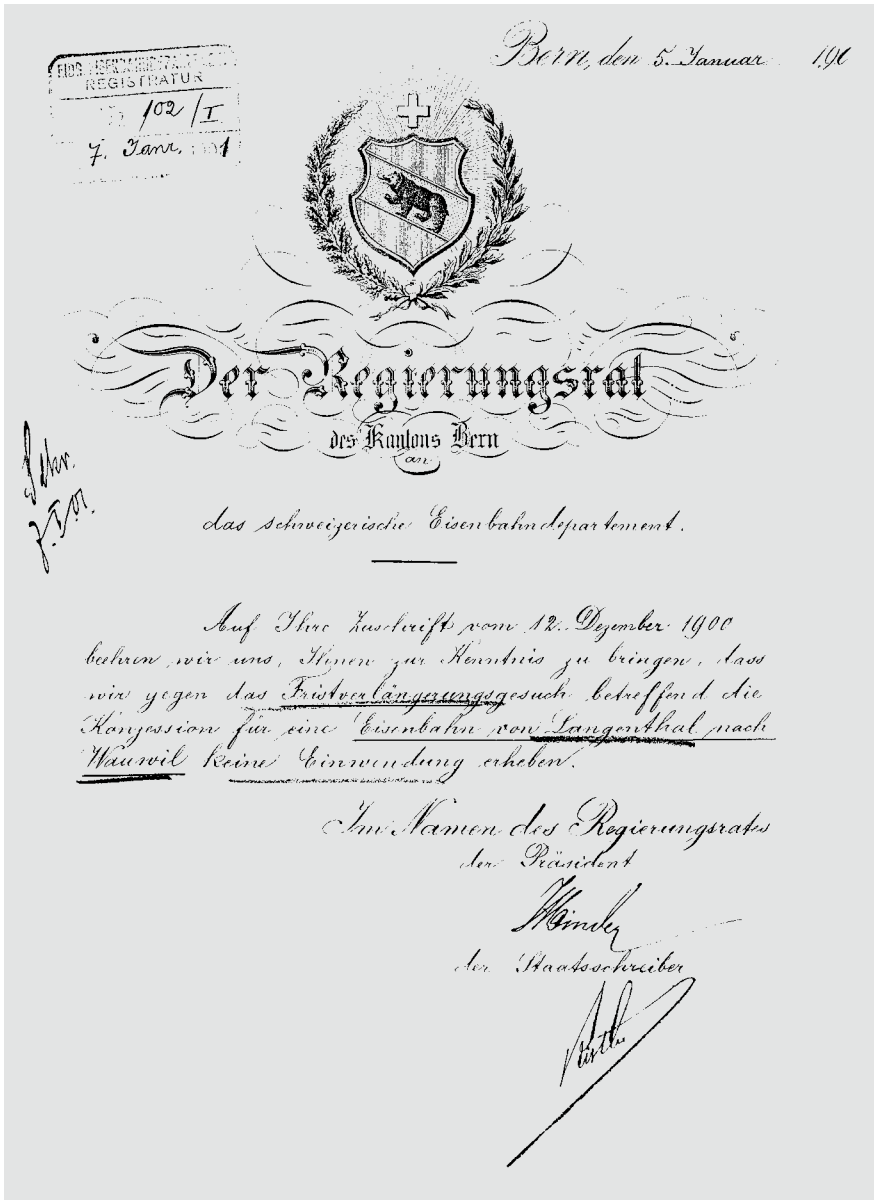 Bern, den 5. Januar 190
REGISTRATUR
102/I
7. Janr.
Der Regierungsrat
des Kantons Bern
an
das schweizerische Eisenbahndepartement.
Auf Ihre Zuschrift vom 12. Dezember 1900
beehren wir uns, Ihnen zur Kenntnis zu bringen, dass
wir gegen das Fristverlängerungsgesuch betreffend die
Konzession für eine Eisenbahn von Langenthal nach
Wauwil keine Einwendung erheben.
Im Namen des Regierungsrates
der Präsident
Minder
der Staatsschreiber